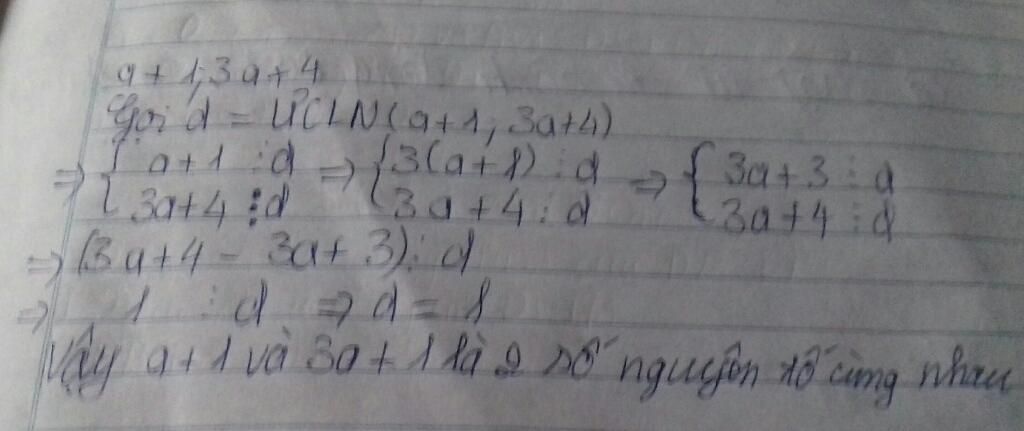 a+1; 3a+4
Gọi d = ƯCLN(a+1; 3a+4)
⇒ { a+1 ⋮ d ⇒ { 3(a+1) ⋮ d ⇒ { 3a+3 ⋮ d
3a+4 ⋮ d 3a+4 ⋮ d 3a+4 ⋮ d
⇒ (3a+4 - 3a+3) ⋮ d
⇒ 1 ⋮ d ⇒ d = 1
Vậy a+1 và 3a+1 là 2 số nguyên tố cùng nhau